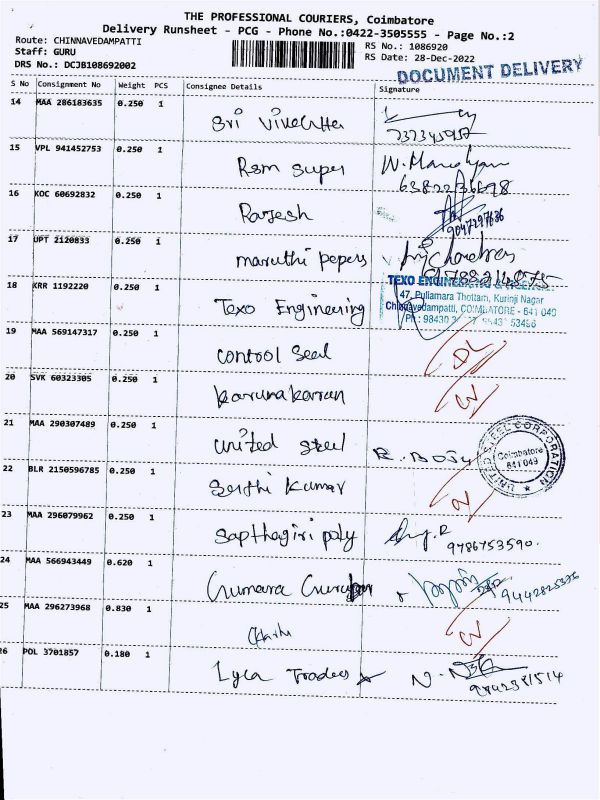 THE PROFESSIONAL COURIERS, Coimbatore
Delivery Runsheet - PCG - Phone No.:0422-3505555 - Page No.:2
Route: CHINNAVEDAMPATTI
RS No.: 1086920
Staff: GURU
RS Date: 28-Dec-2022
DRS No.: DCJB108692002
DOCUMENT DELIVERY
S No Consignment No Weight PCS Consignee Details Signature
14 MAA 286183635 0.250 1 Sri
15 VPL 941452753 0.250 1 Rsm super
16 KOC 60692832 0.250 1 Rajesh
9047297636
17 UPT 2120833 0.250 1 maruthi pepers
18 KRR 1192220 0.250 1 Texo Engineering
TEXO ENGINEERING
47, Pullamara Thottam, Kurinji Nagar
Chinnavedampatti, COIMBATORE - 641 049
19 MAA 569147317 0.250 1 control seal
20 SVK 60323305 0.250 1 karunakaran
21 MAA 290307489 0.250 1 united steel
UNITED STEEL CORPORATION
Coimbatore
641 049
22 BLR 2150596785 0.250 1 Kumar
23 MAA 296079962 0.250 1 sapthagiri poly
9786753590.
24 MAA 566943449 0.620 1
9442825375
25 MAA 296273968 0.830 1
26 POL 3701857 0.180 1 Lyca Traders